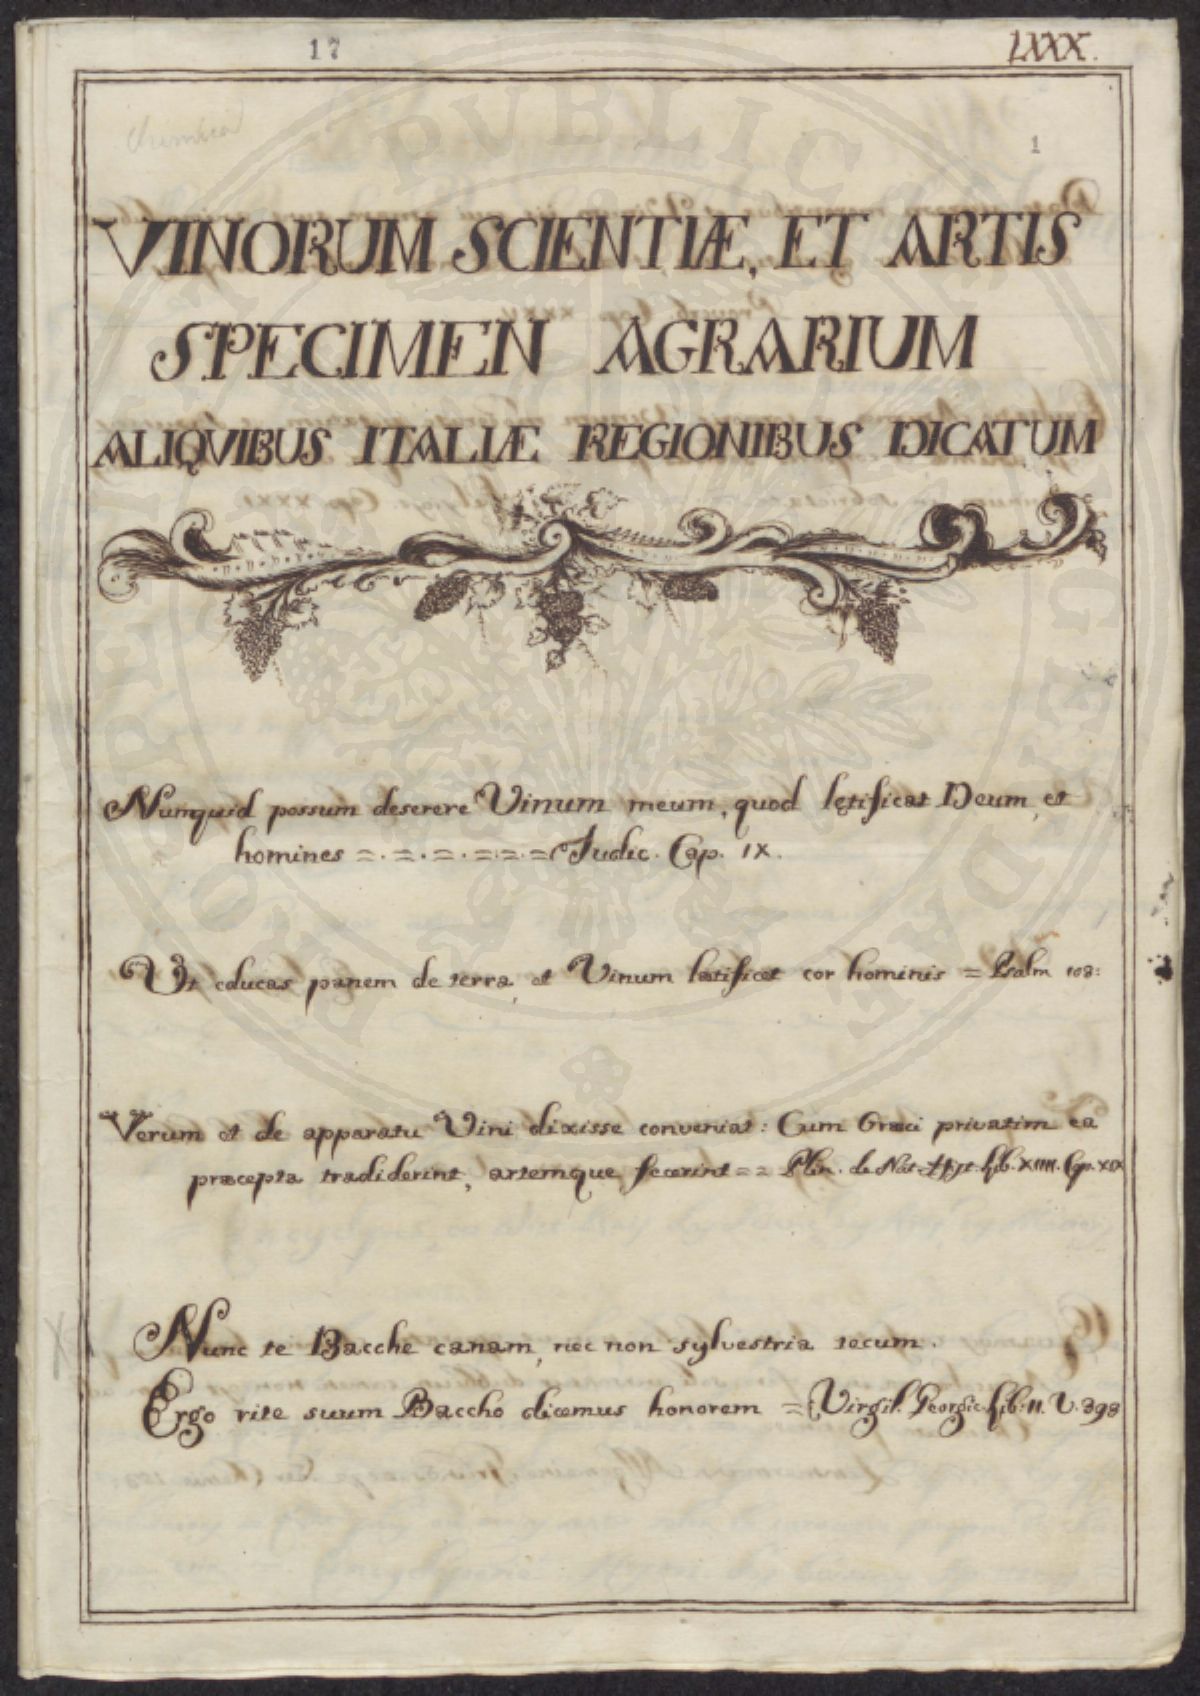 17
LXXX.
Chimica
1
VINORUM SCIENTIÆ, ET ARTIS
SPECIMEN AGRARIUM
ALIQVIBUS ITALIÆ REGIONIBUS DICATUM
Numquid possum deserere Vinum meum, quod lętificat Deum, et
homines =.=.=.=.=.= Judic. Cap. IX.
Ut educas panem de terra, et Vinum lætificet cor hominis = Psalm 103:
Verum et de apparatu Vini dixisse conveniat: Cum Græci privatim ea
præcepta tradiderint, artemque fecerint = = Plin. de Nat. Hist. Lib. XIIII. Cap. XIX
Nunc te Bacche canam, nec non sylvestria tecum.
Ergo rite suum Baccho dicemus honorem = Virgil. Georgic. Lib: II. V. 393